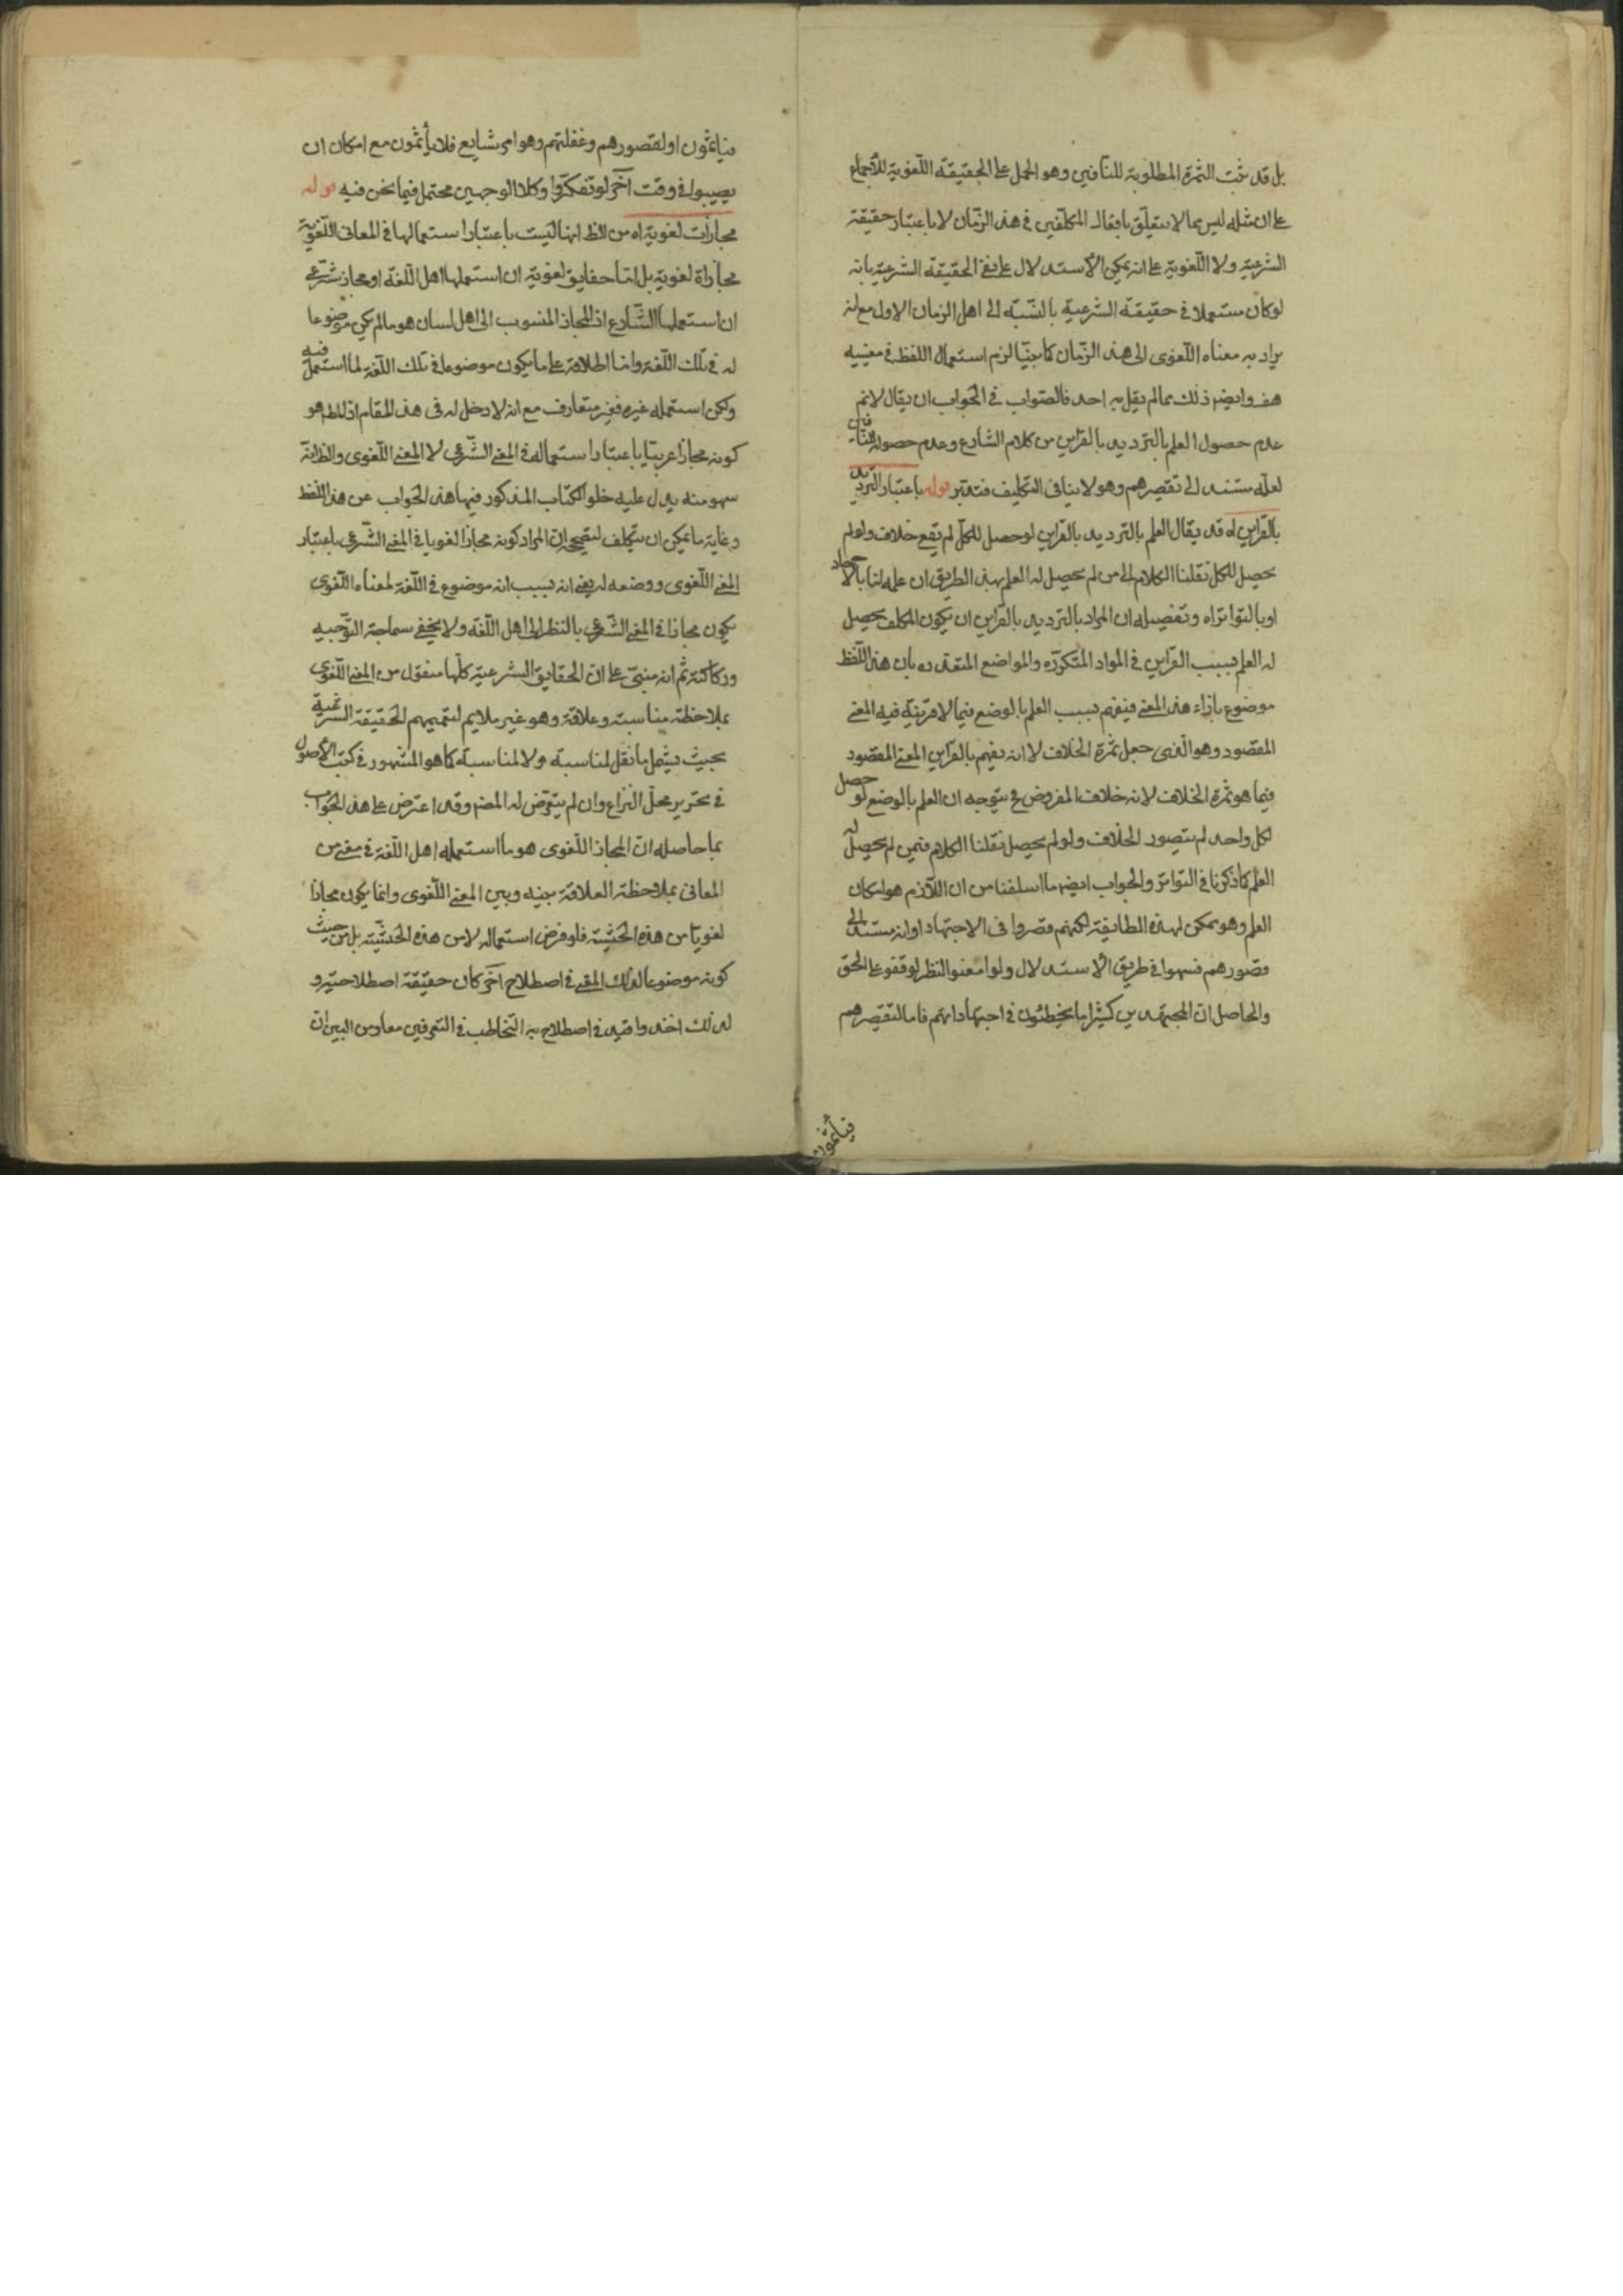 بل قد ثبت الثمرة المطلوبة للنافين وهو الحمل على الحقيقة اللغوية للاجماع
على ان مثله ليس مما لا يتعلق بافعال المكلفين في هذا الزمان لا باعتبار حقيقة
الشرعية ولا اللغوية على انه يمكن الاستدلال على نفي الحقيقة الشرعية بانه
لو كان مستعملا في حقيقة الشرعية بالنسبة الى اهل الزمان الاول مع انه
يراد به معناه اللغوي الى هذا الزمان كما بينا لزم استعمال اللفظ في معنييه
هف وايضا ذلك مما لم يقل به احد فالصواب في الجواب ان يقال لانم
عدم حصول العلم بالترديد بالقراين من كلام الشارع وعدم حصوله للنافين
لعله مستند الى تقصيرهم وهو لا ينافي التكليف فتدبر قوله باعتبار الترديد
بالقراين اه قد يقال العلم بالترديد بالقراين لو حصل للكل لم يقع خلاف ولو لم
يحصل للكل نقلنا الكلام الى من لم يحصل له العلم بهذا الطريق ان علمه لنا بالآحاد
او بالتواتر اه وتفصيله ان المراد بالترديد بالقراين ان يكون المكلف يحصل
له العلم بسبب القراين في المواد المتكررة والمواضع المتعدده بان هذا اللفظ
موضوع بازاء هذا المعنى فيفهم بسبب العلم بالوضع فيما لا قرينة فيه المعنى
المقصود وهو الذي جعل ثمرة الخلاف لا انه يفهم بالقراين المعنى المقصود
فيما هو ثمرة الخلاف لانه خلاف المفروض فح يتوجه ان العلم بالوضع لو حصل
لكل واحد لم يتصور الخلاف ولو لم يحصل نقلنا الكلام فيمن لم يحصل له
العلم كما ذكرنا في التواتر والجواب ايضا ما اسلفنا من ان اللازم هو امكان
العلم وهو ممكن لهذه الطايفة لكنهم قصروا في الاجتهاد او انه مستند الى
قصورهم فسهوا في طريق الاستدلال ولو امعنوا النظر لوقفوا على الحق
والحاصل ان المجتهدين كثيرا ما يخطئون في اجتهاداتهم فاما لتقصيرهم
فيأثمون
فيأثمون او لقصورهم وغفلتهم وهو امر شايع فلا يأثمون مع امكان ان
يصيبوا في وقت آخر لو تفكروا وكلا الوجهين محتمل فيما نحن فيه قوله
مجازات لغوية اه من الظ انها ليست باعتبار استعمالها في المعاني اللغوية
مجازاة لغوية بل اما حقايق لغوية ان استعملها اهل اللغة او مجاز شرعي
ان استعملها الشارع اذ المجاز المنسوب الى اهل لسان هو ما لم يكن موضوعا
له في تلك اللغة واما اطلاقه على ما يكون موضوعا في تلك اللغة لما استعمل فيه
ولكن استعمله غيره فغير متعارف مع انه لا دخل له في هذا المقام اذ المط هو
كونه مجازا عربيا باعتبار استعماله في المعنى الشرعي لا المعنى اللغوي والظ انه
سهو منه يدل عليه خلو الكتاب المذكور فيها هذا الجواب عن هذا اللفظ
وغاية ما يمكن ان يتكلف لتصحيح ان المراد كونه مجازا لغويا في المعنى الشرعي باعتبار
المعنى اللغوي ووضعه له يعني انه بسبب انه موضوع في اللغة لمعناه اللغوي
يكون مجازا في المعنى الشرعي بالنظر الى اهل اللغة ولا يخفى سماجة التوجيه
وركاكته ثم انه مبني على ان الحقايق الشرعية كلها منقول من المعنى اللغوي
بملاحظة مناسبة وعلاقة وهو غير ملايم لتعميمهم الحقيقة الشرعية
بحيث يشمل ما نقل لمناسبة ولا لمناسبة كما هو المشهور في كتب الاصول
في تحرير محل النزاع وان لم يتعرض له المصنف وقد اعترض على هذا الجواب
بما حاصله ان المجاز اللغوي هو ما استعمله اهل اللغة في معنى من
المعاني بملاحظة العلاقة بينه وبين المعنى اللغوي وانما يكون مجازا
لغويا من هذه الحيثية فلو فرض استعماله لا من هذه الحيثية بل من حيث
كونه موضوعا لذلك المعنى في اصطلاح آخر كان حقيقة اصطلاحية و
لذلك اخذوا قيد في اصطلاح به التخاطب في التعريفين معا ومن البين ان